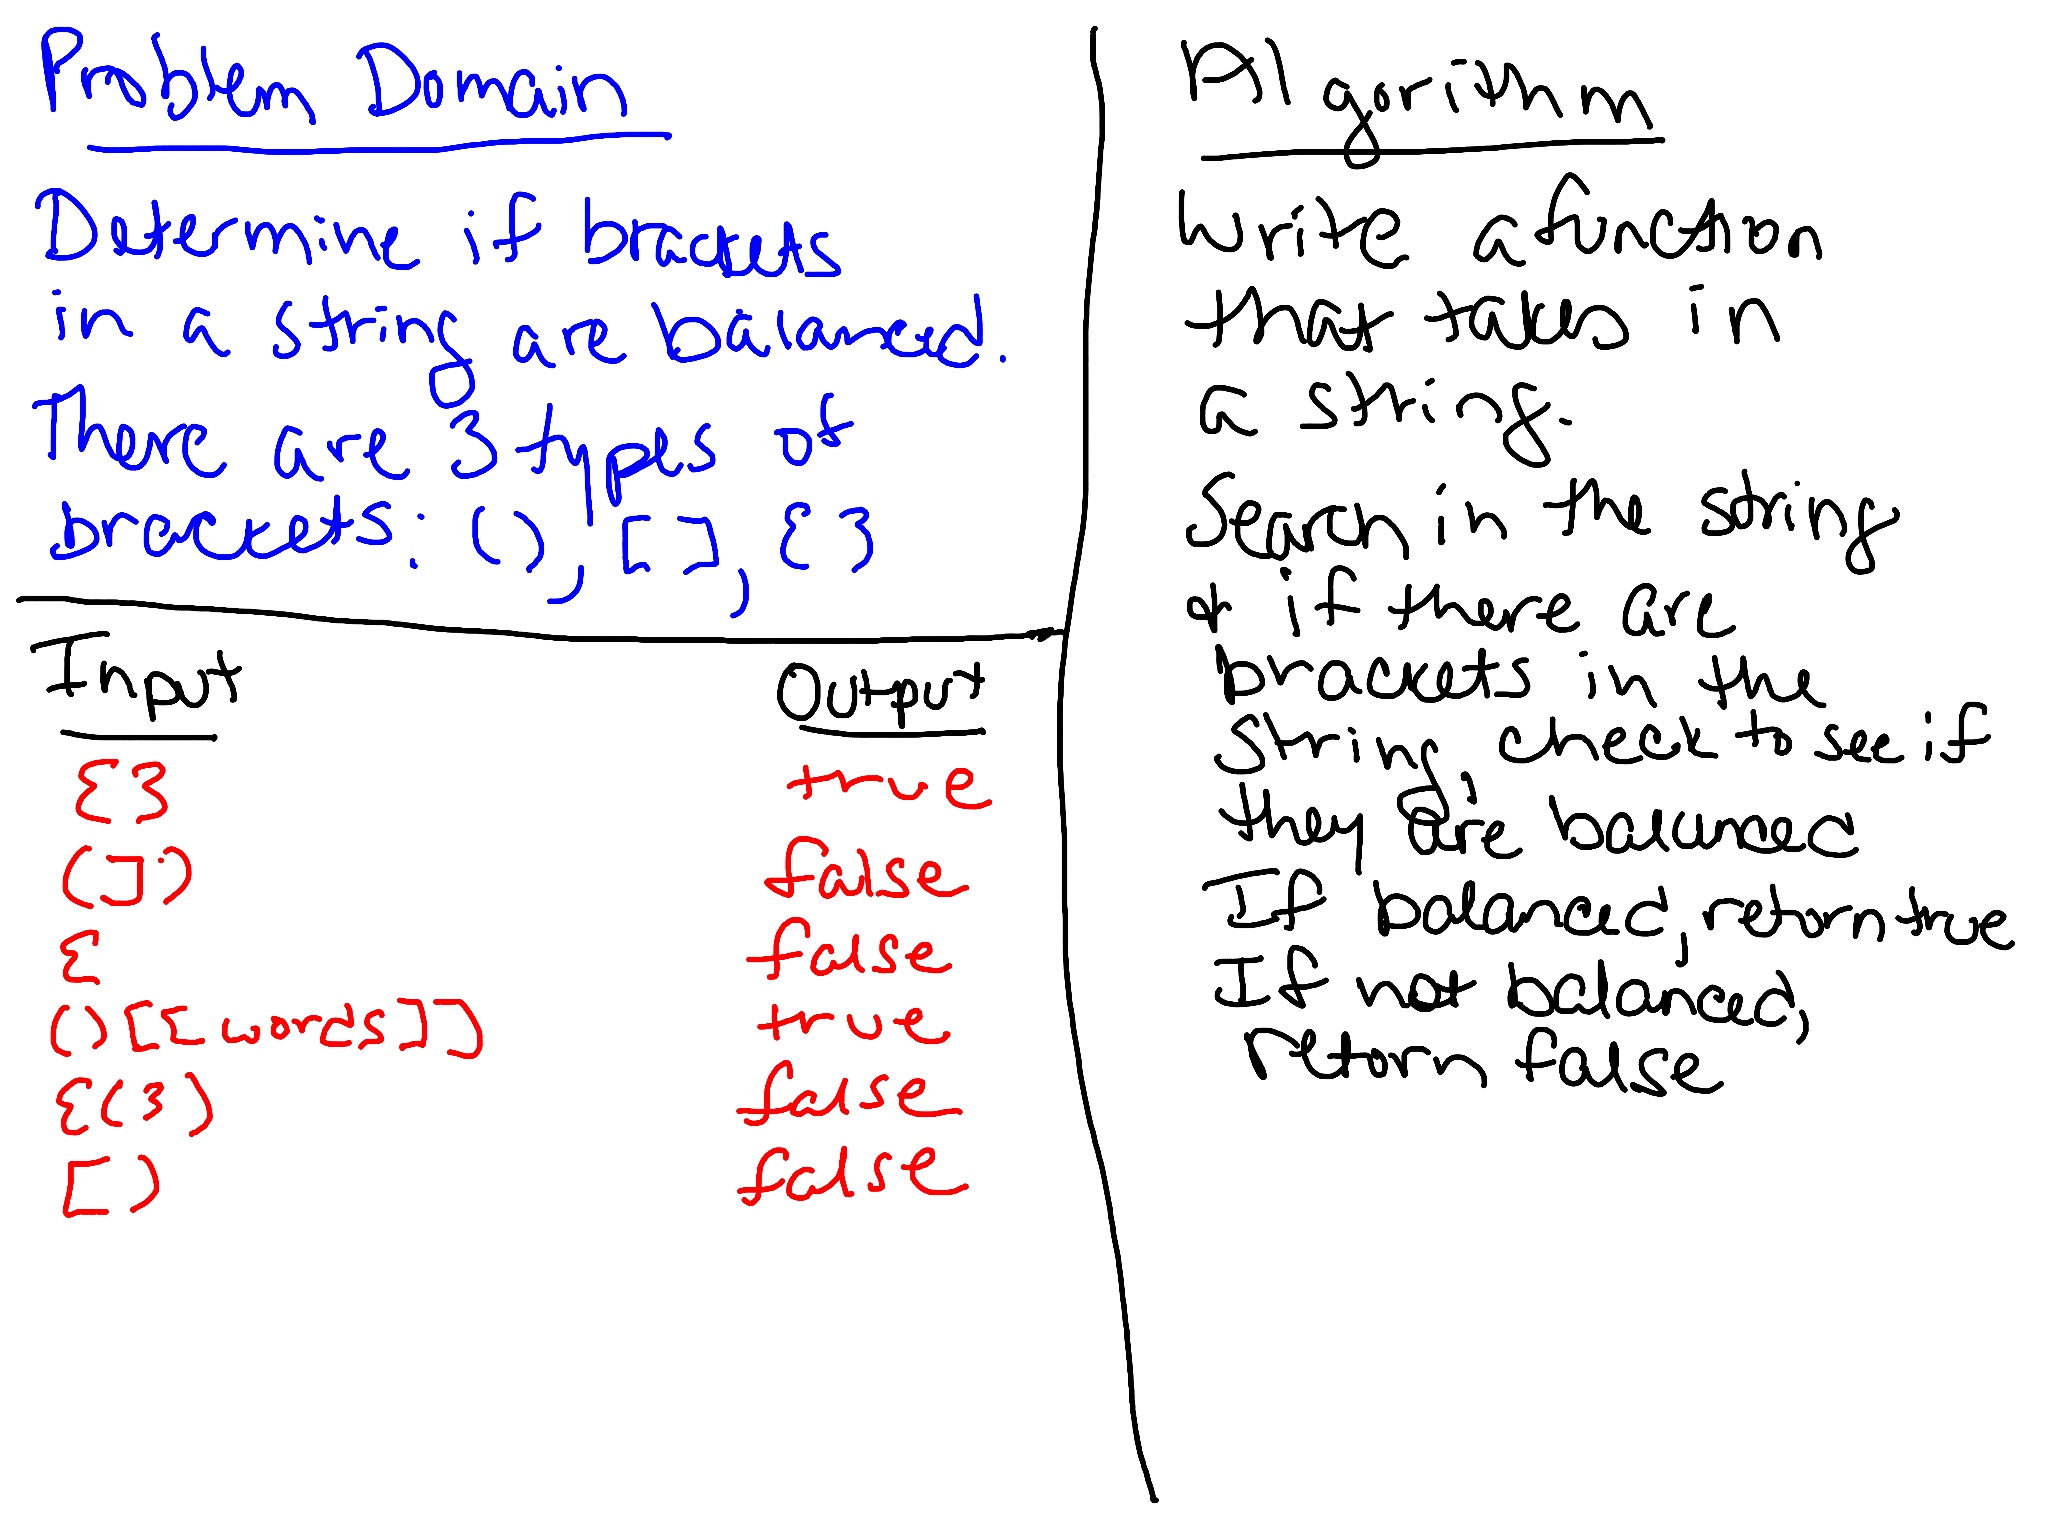 Problem Domain
Determine if brackets
in a string are balanced.
There are 3 types of
brackets: (), [], {}
Input Output
{} true
(]) false
{ false
()[[words]] true
{(}) false
[) false
Algorithm
Write a function
that takes in
a string.
Search in the string
& if there are
brackets in the
string, check to see if
they are balanced
If balanced, return true
If not balanced,
return false